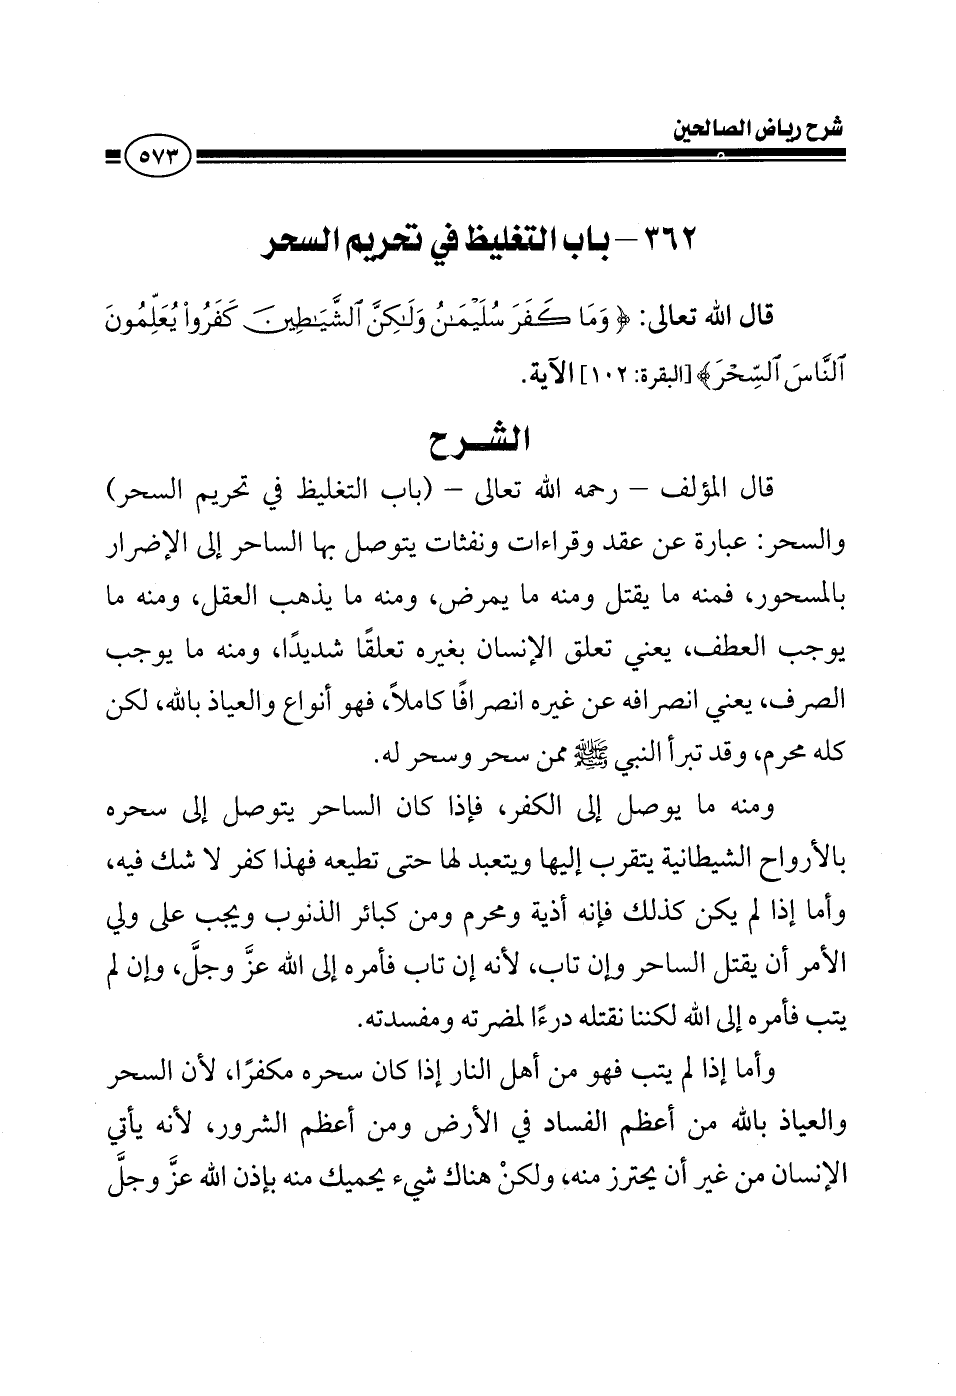 شرح رياض الصالحين
٥٧٣
٣٦٢ – باب التغليظ في تحريم السحر
قال الله تعالى: ﴿ وَمَا كَفَرَ سُلَيْمَٰنُ وَلَٰكِنَّ ٱلشَّيَٰطِينَ كَفَرُواْ يُعَلِّمُونَ
ٱلنَّاسَ ٱلسِّحْرَ﴾ [البقرة: ١٠٢] الآية.
الشرح
قال المؤلف – رحمه الله تعالى – (باب التغليظ في تحريم السحر)
والسحر: عبارة عن عقد وقراءات ونفثات يتوصل بها الساحر إلى الإضرار
بالمسحور، فمنه ما يقتل ومنه ما يمرض، ومنه ما يذهب العقل، ومنه ما
يوجب العطف، يعني تعلق الإنسان بغيره تعلقًا شديدًا، ومنه ما يوجب
الصرف، يعني انصرافه عن غيره انصرافًا كاملاً، فهو أنواع والعياذ بالله، لكن
كله محرم، وقد تبرأ النبي ﷺ ممن سحر وسحر له.
ومنه ما يوصل إلى الكفر، فإذا كان الساحر يتوصل إلى سحره
بالأرواح الشيطانية يتقرب إليها ويتعبد لها حتى تطيعه فهذا كفر لا شك فيه،
وأما إذا لم يكن كذلك فإنه أذية ومحرم ومن كبائر الذنوب ويجب على ولي
الأمر أن يقتل الساحر وإن تاب، لأنه إن تاب فأمره إلى الله عزَّ وجلَّ، وإن لم
يتب فأمره إلى الله لكننا نقتله درءًا لمضرته ومفسدته.
وأما إذا لم يتب فهو من أهل النار إذا كان سحره مكفرًا، لأن السحر
والعياذ بالله من أعظم الفساد في الأرض ومن أعظم الشرور، لأنه يأتي
الإنسان من غير أن يحترز منه، ولكنْ هناك شيء يحميك منه بإذن الله عزَّ وجلَّ